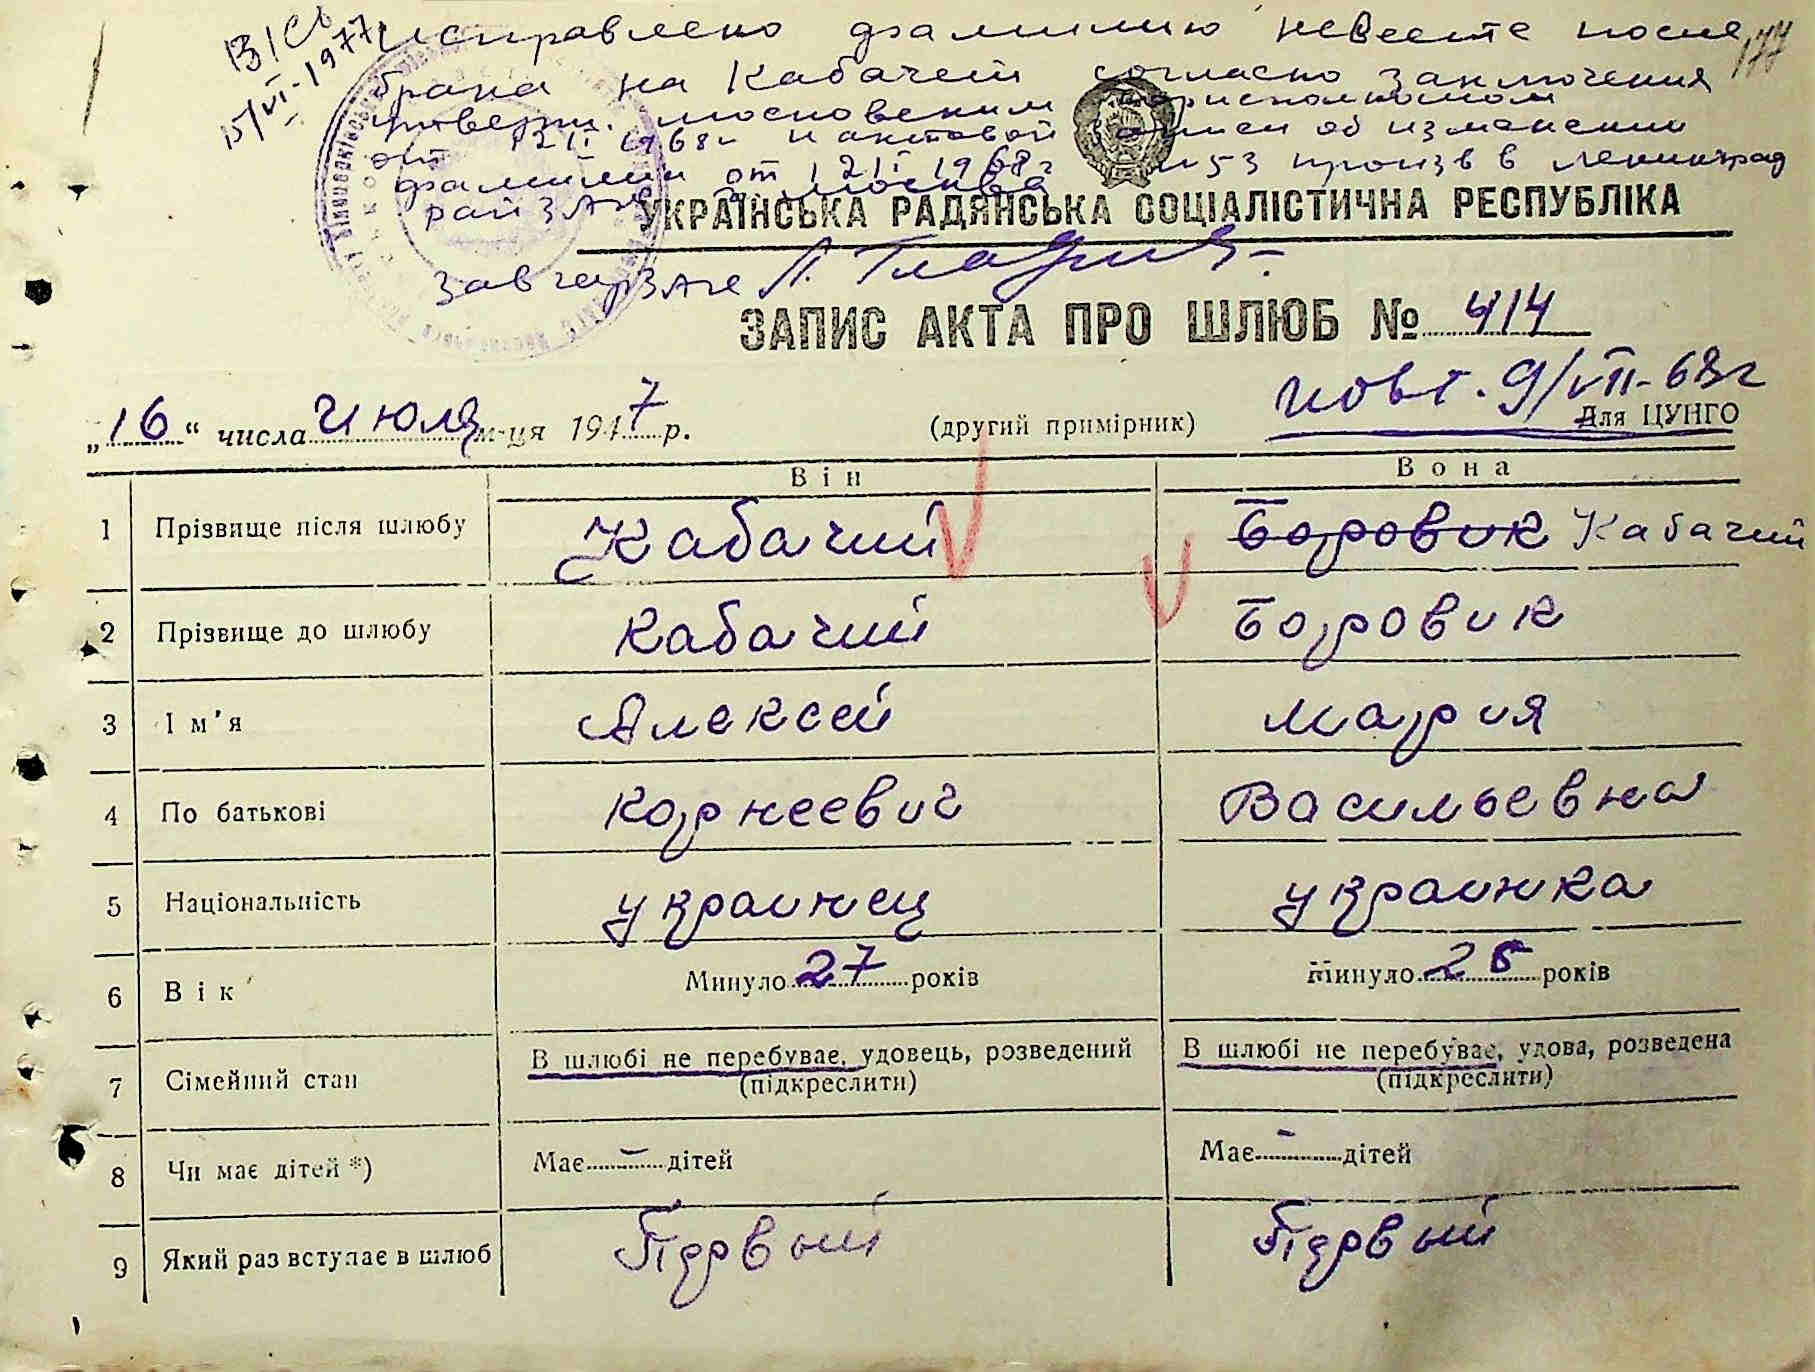 исправлено фамилию невесте после
брака на Кабачей согласно заключения
утверж. московским горисполкомом
от 12 II 1968г и актовой записи об изменении
фамилии от 12 II 1968г №53 произв в Ленинград
рай ЗАГС г. Москва
УКРАЇНСЬКА РАДЯНСЬКА СОЦІАЛІСТИЧНА РЕСПУБЛІКА
15/VI-1977
177
завгорЗАГС
ЗАПИС АКТА ПРО ШЛЮБ № 414
повт. 9/VII-68г
„16“ числа Июля м-ця 1947 р. (другий примірник) Для ЦУНГО
Він Вона
1 Прізвище після шлюбу Кабачий Боровик Кабачий
2 Прізвище до шлюбу Кабачий Боровик
3 Ім'я Алексей Мария
4 По батькові Корнеевич Васильевна
5 Національність украинец украинка
6 Вік Минуло 27 років Минуло років
7 Сімейний стан В шлюбі не перебуває, удовець, розведений В шлюбі не перебуває, удова, розведена
(підкреслити) (підкреслити)
8 Чи має дітей *) Має - дітей Має - дітей
9 Який раз вступає в шлюб Первый Первый